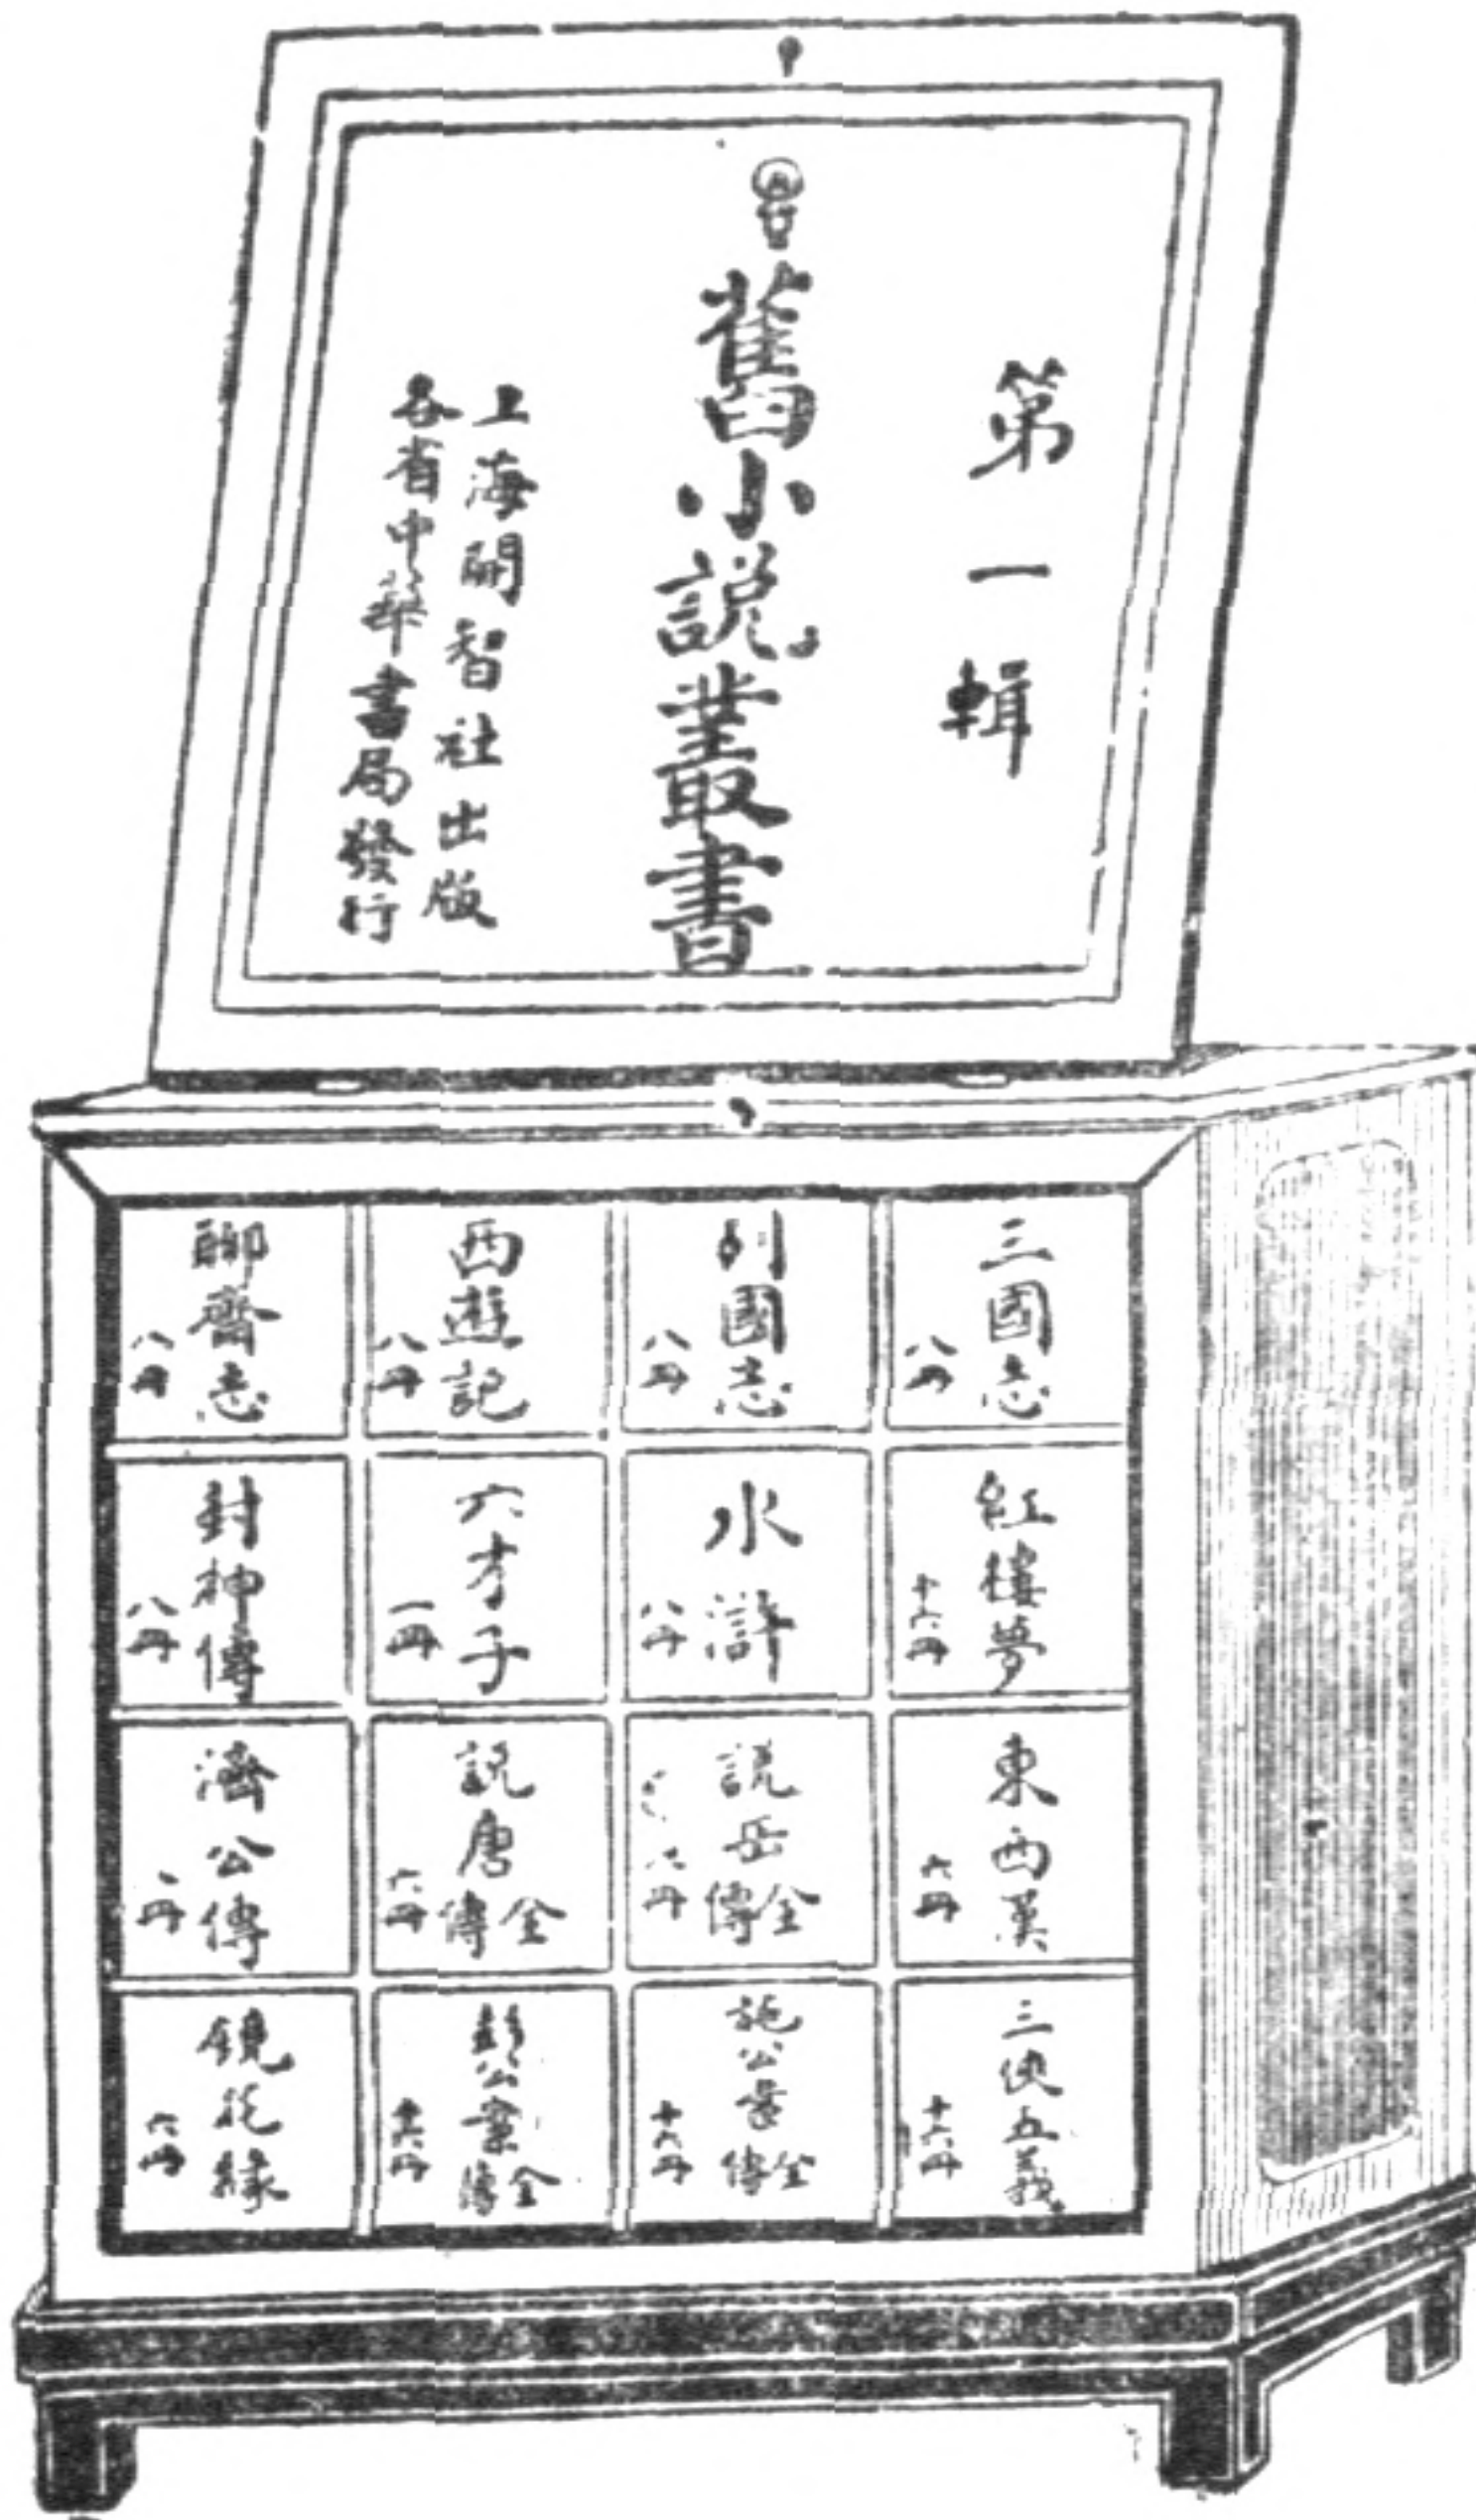 第一輯
舊小説叢書
上海開智社出版
各省中華書局發行
三國志
八冊
列國志
八冊
西遊記
八冊
聊齋志
八冊
紅樓夢
十六冊
水滸
八冊
六才子
一冊
封神傳
八冊
東西漢
六冊
説岳全傳
説唐全傳
六冊
濟公傳
三俠五義
十六冊
施公案全傳
十六冊
彭公案全傳
鏡花緣
六冊